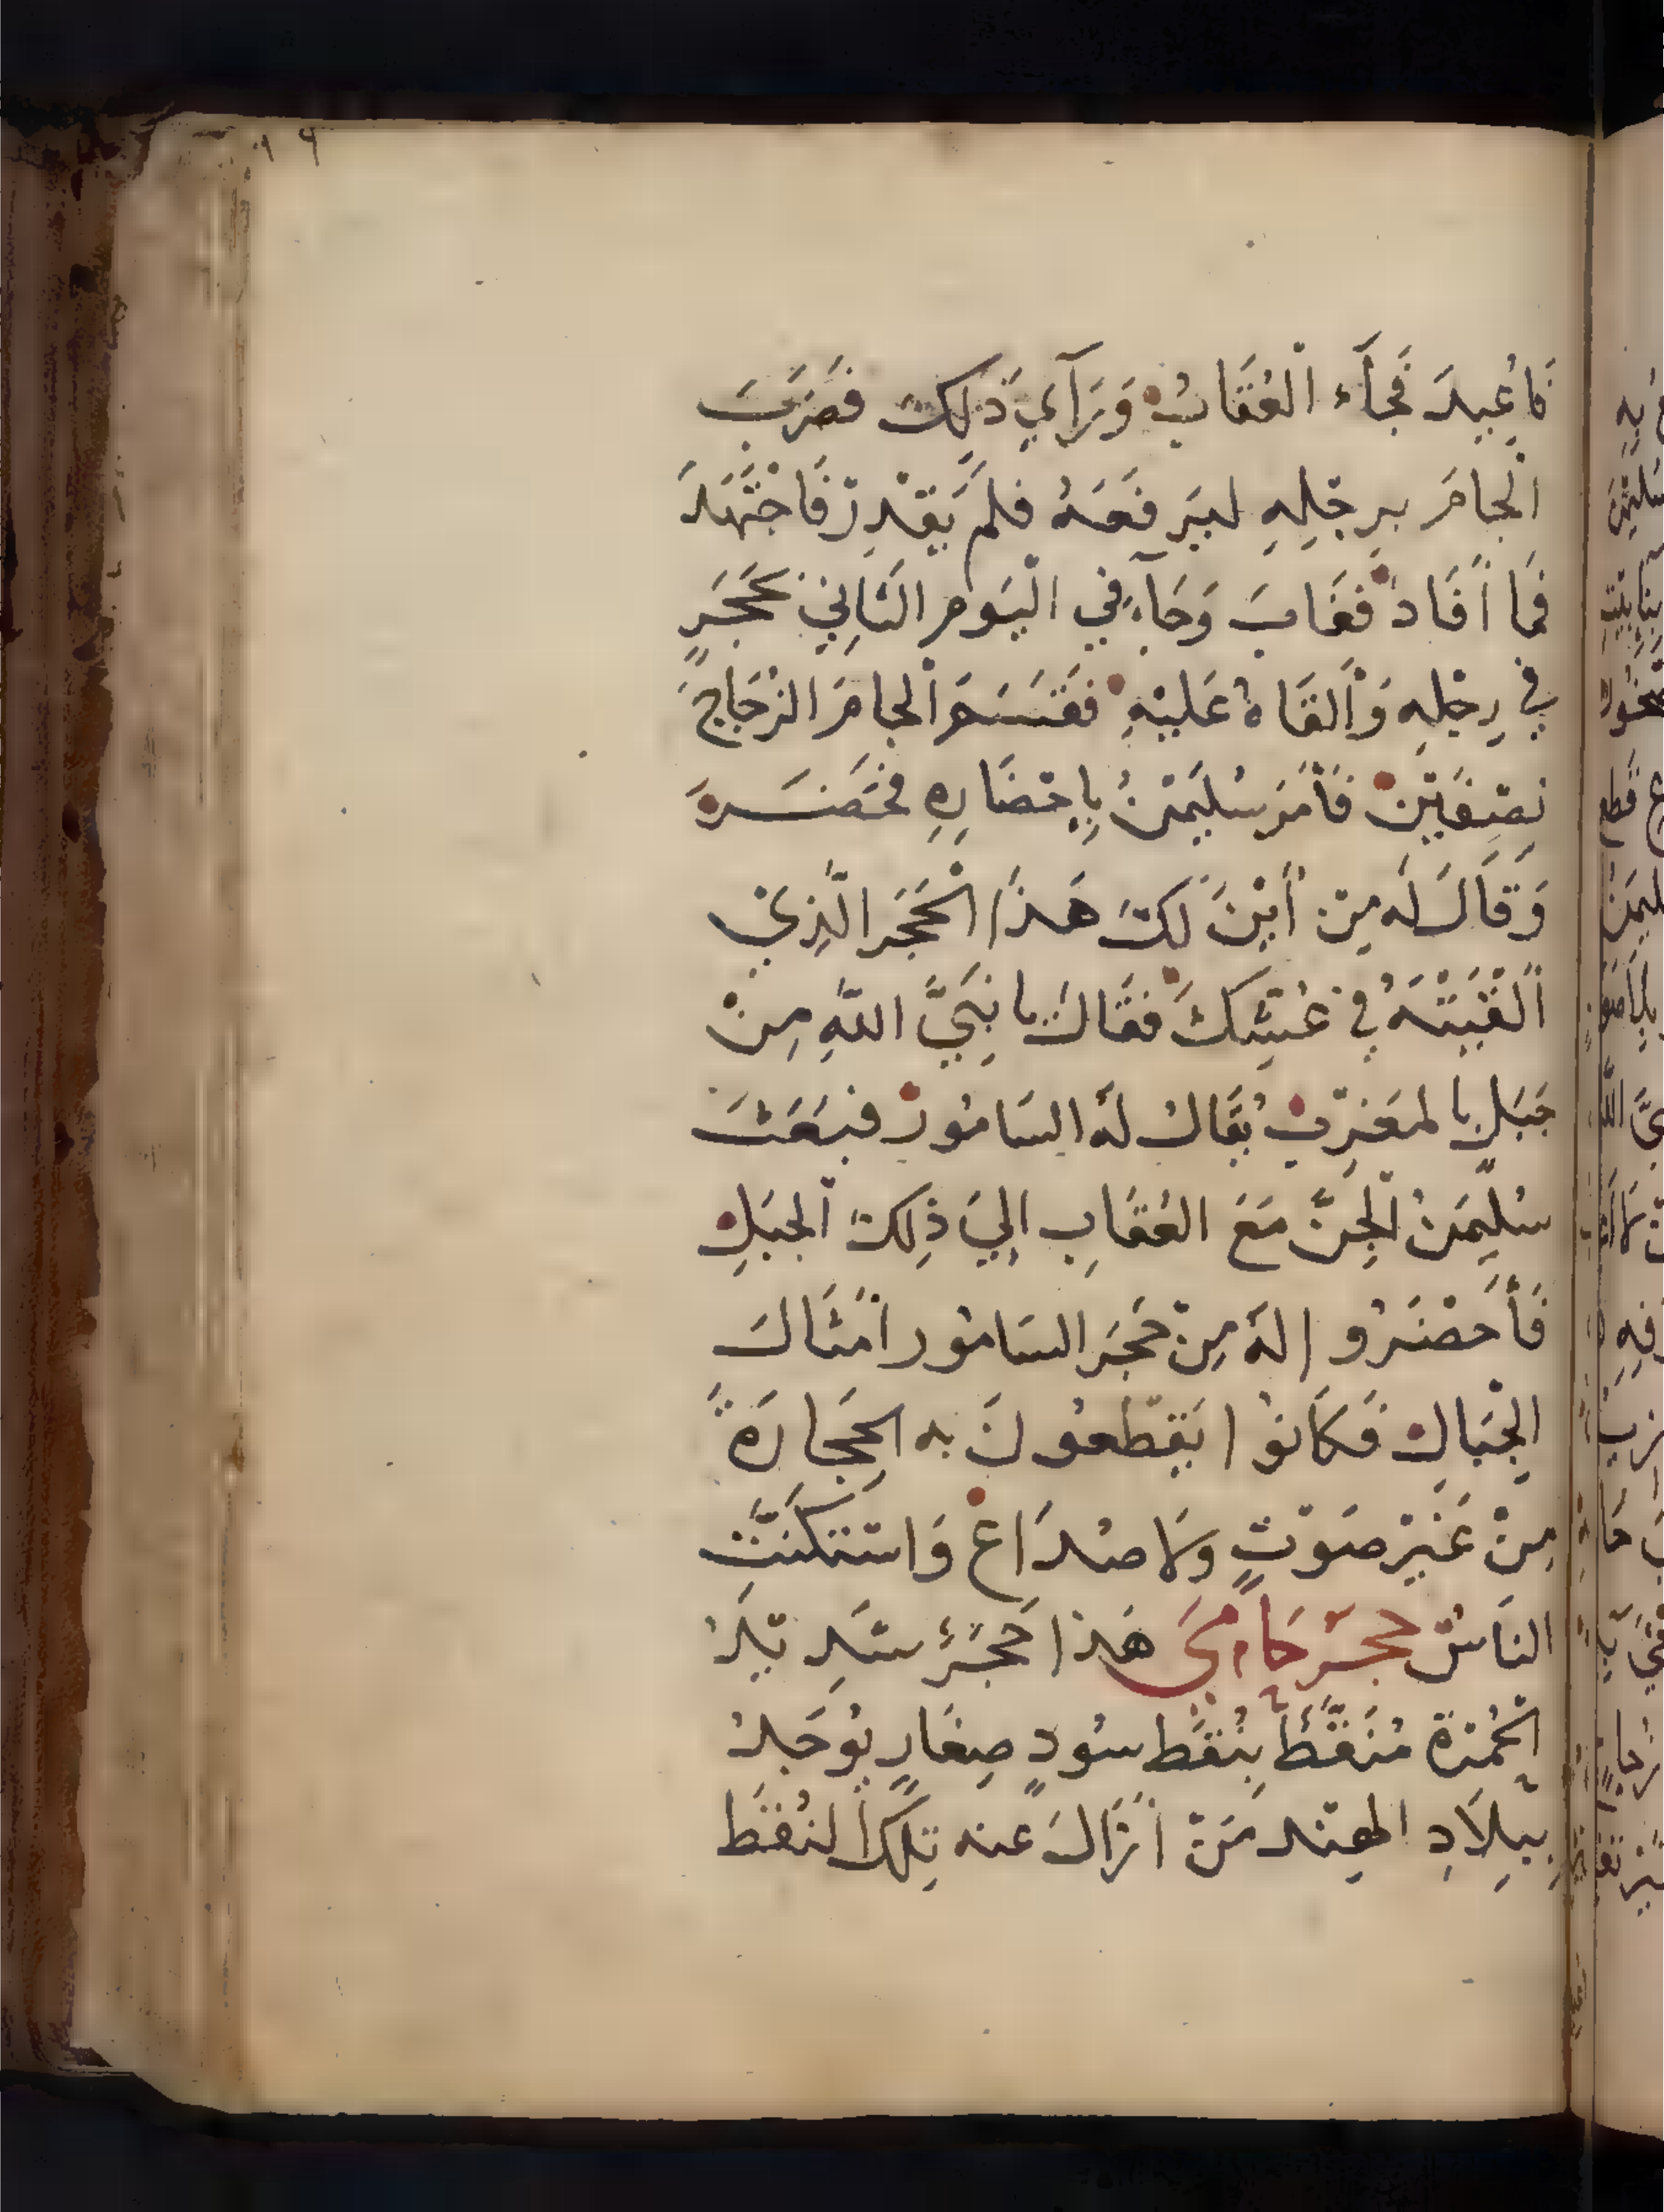 ١٩
فَاُعِيدَ فَجَآءَ الْعُقَابُ وَرَآيَ ذَلِكَ فَضَرَبَ
الْجَامَ بِرِجْلِهِ لِيَرفَعَهُ فلم يَقْدِرْ فَاجْتَهَدَ
فَمَا أفَادَ فغَابَ وَجَآءَ فِي الْيَومِ الثَانِي بحَجَرٍ
في رِجْلِهِ وَألقَاهُ عَلَيْهِ فقَسَمَ الْجَامَ الزُجَاجَ
نِصْفَيْنْ فَأمَرَ سُلَيمَنُ بِإحْضَارِهِ فَحَضَرَ
وَقَالَ لَه مِنْ أيْنَ لكَ هَذَا الْحَجَر الَّذِيْ
ألْقَيْتَهُ في عُشِّكَ فقَالَ يا نَبِيَّ اللهِ مِنْ
جَبَلٍ بالمغرِبْ يُقَالُ لَهُ السَامُورْ فبَعَثَ
سُلَيمَنُ الْجِنَّ مَعَ العُقَابِ إلَيَ ذَلِكَ الجبَلِ
فَأحْضَرُوا لهُ مِنْ حَجَرِ السَامُور أمْثَالَ
الْجِبَالِ فَكَانُوا يَقْطَعُونَ به الحِجَارَةَ
مِنْ غَيْرِ صَوْتٍ وَلا صُدَاعْ وَاسْتَكَنَّتِ
النَاسُ حجر حَامِي هَذا حَجَرٌ شَدِيْدُ
الْحُمْرَة مُنَقَّطٌ بِنُقَطٍ سُودٍ صِغَارٍ يُوجَدُ
بِبِلاَدِ الهِنْد مَنْ أزَالَ عنه تِلكَ النُقَط